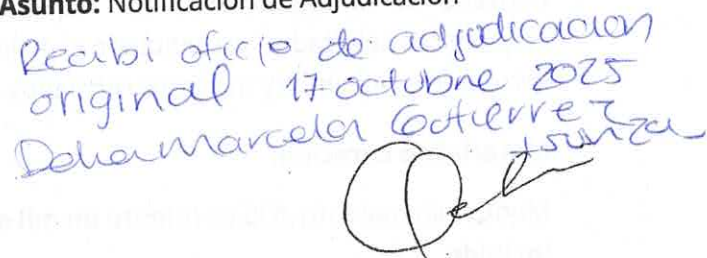 Asunto: Notificación de Adjudicación
Recibi oficio de adjudicacion
original 17 octubre 2025
Marcela Gutierrez